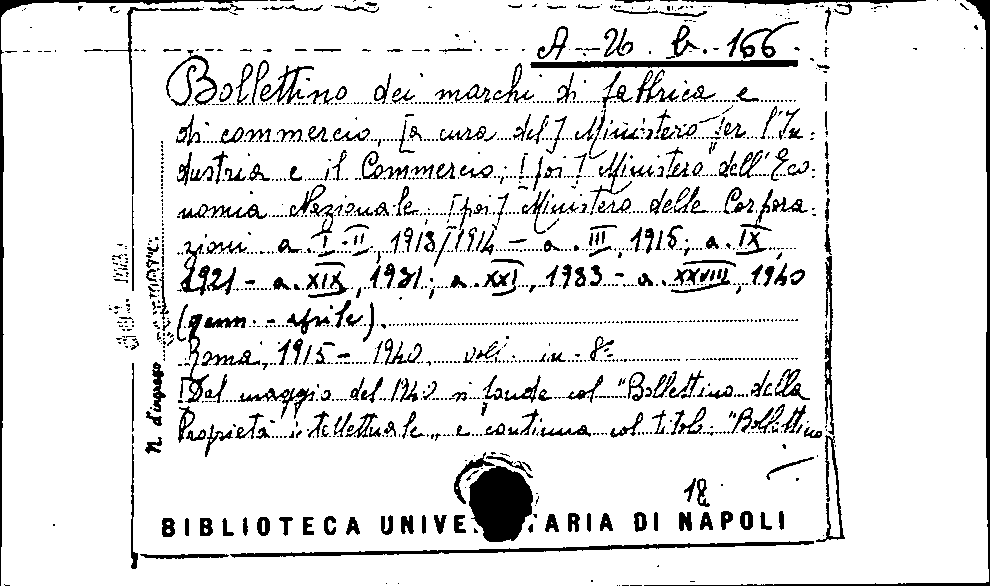 A - 26. b. - 166.
Bollettino dei marchi di fabbrica e
di commercio, [a cura del] Ministero per l'In-
dustria e il Commercio, [poi] Ministero dell'Eco-
nomia Nazionale, [poi] Ministero delle Corpora-
zioni. a. I-II, 1913/1914 - a. III, 1915; a. IX,
1921 - a. XIX, 1931; a. XXI, 1933 - a. XXVIII, 1940
(genn. - aprile).
Roma, 1915 - 1940. voll. in-8°
[Dal maggio del 1940 si fonde col "Bollettino della
Proprietà intellettuale" e continua col titolo: "Bollettino
N. d'ingresso
18
BIBLIOTECA UNIVE TARIA DI NAPOLI